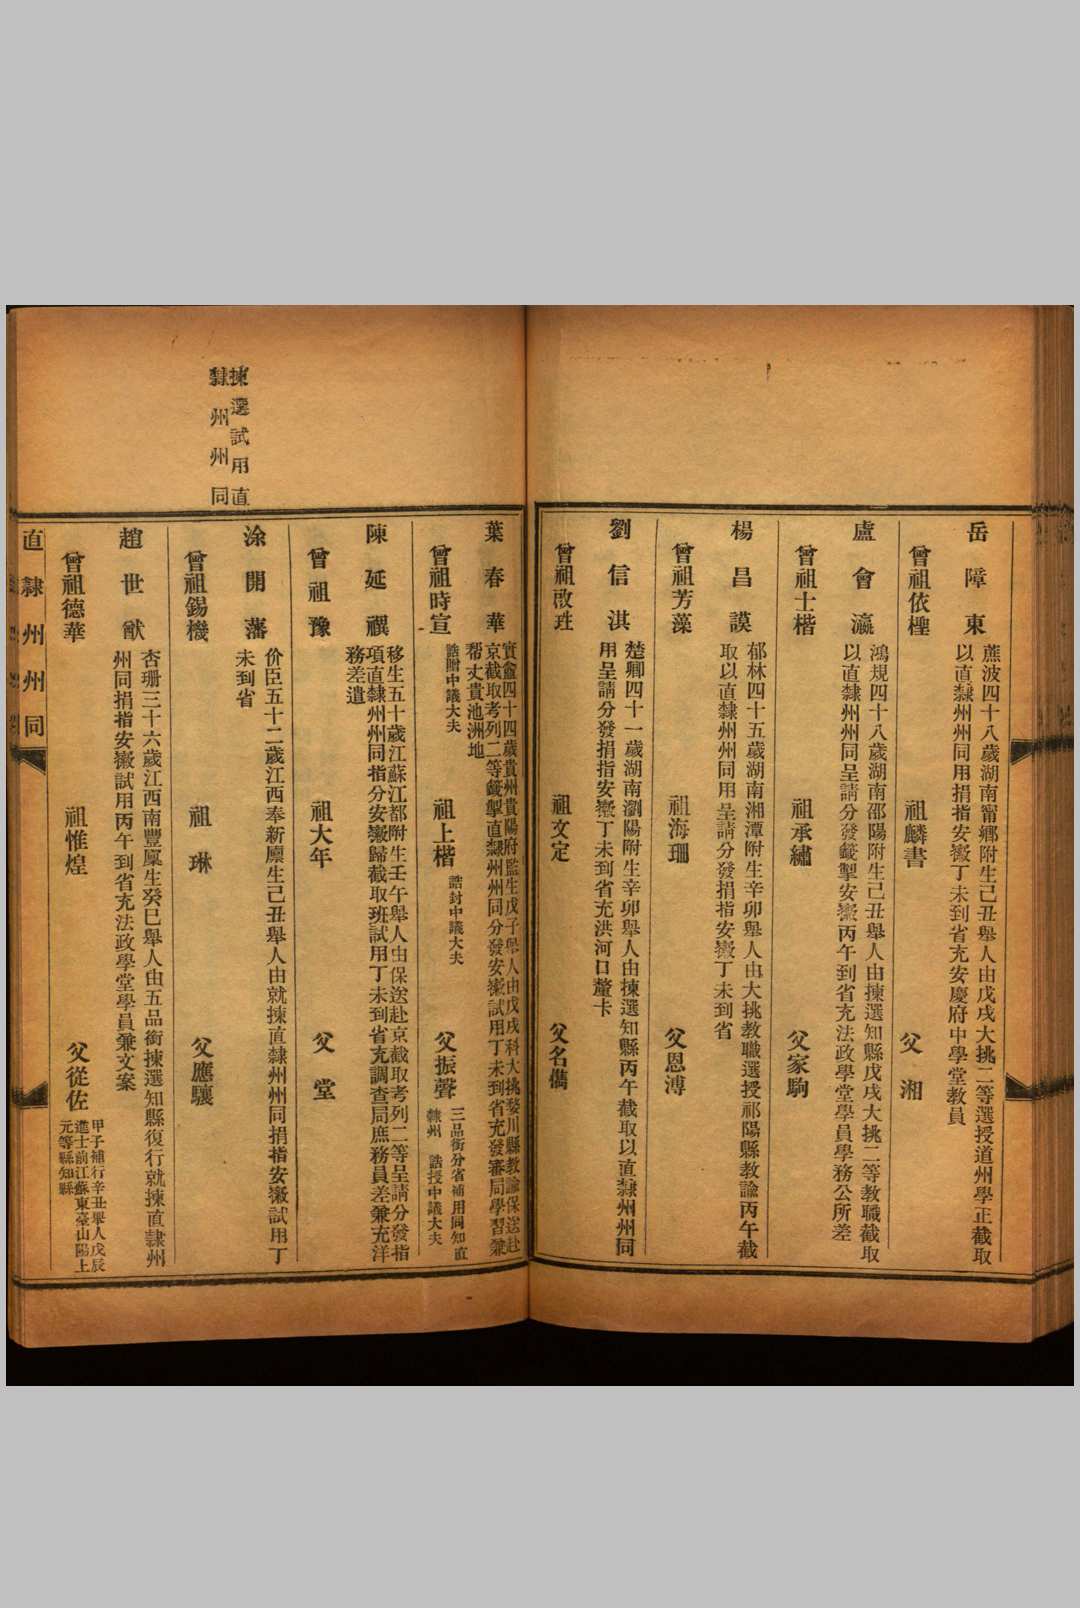 岳障東
蔗波四十八歲湖南甯鄉附生己丑舉人由戊戌大挑二等選授道州學正截取
以直隸州州同用捐指安徽丁未到省充安慶府中學堂教員
曾祖依檉 祖麟書 父湘
盧會瀛
鴻規四十八歲湖南邵陽附生己丑舉人由揀選知縣戊戌大挑二等教職截取
以直隸州州同呈請分發籤掣安徽丙午到省充法政學堂學員學務公所差
曾祖士楷 祖承繡 父家駒
楊昌謨
郁林四十五歲湖南湘潭附生辛卯舉人由大挑教職選授祁陽縣教諭丙午截
取以直隸州州同用呈請分發捐指安徽丁未到省
曾祖芳藻 祖海珊 父恩溥
劉信淇
楚卿四十一歲湖南瀏陽附生辛卯舉人由揀選知縣丙午截取以直隸州州同
用呈請分發捐指安徽丁未到省充洪河口釐卡
曾祖啟珄 祖文定 父名儁
葉春華
實僉四十四歲貴州貴陽府監生戊子舉人由戊戌科大挑婺川縣教諭保送赴
京截取考列二等籤掣直隸州州同分發安徽試用丁未到省充發審局學習兼
帮丈貴池洲地
曾祖時宣 誥贈中議大夫 祖上楷 誥封中議大夫 父振聲 三品銜分省補用同知直
隸州 誥授中議大夫
陳延禩
移生五十歲江蘇江都附生壬午舉人由保送赴京截取考列二等呈請分發指
項直隸州州同指分安徽歸截取班試用丁未到省充調查局庶務員差兼充洋
務差遣
曾祖豫 祖大年 父堂
揀選試用直
隸州州同
涂開藩
价臣五十二歲江西奉新廩生己丑舉人由就揀直隸州州同捐指安徽試用丁
未到省
曾祖錫機 祖琳 父應驤
趙世猷
杏珊三十六歲江西南豐廩生癸巳舉人由五品銜揀選知縣復行就揀直隸州
州同捐指安徽試用丙午到省充法政學堂學員兼文案
曾祖德華 祖惟煌 父從佐 甲子補行辛丑舉人戊辰
進士前江蘇東臺山陽上
元等縣知縣
直隸州州同